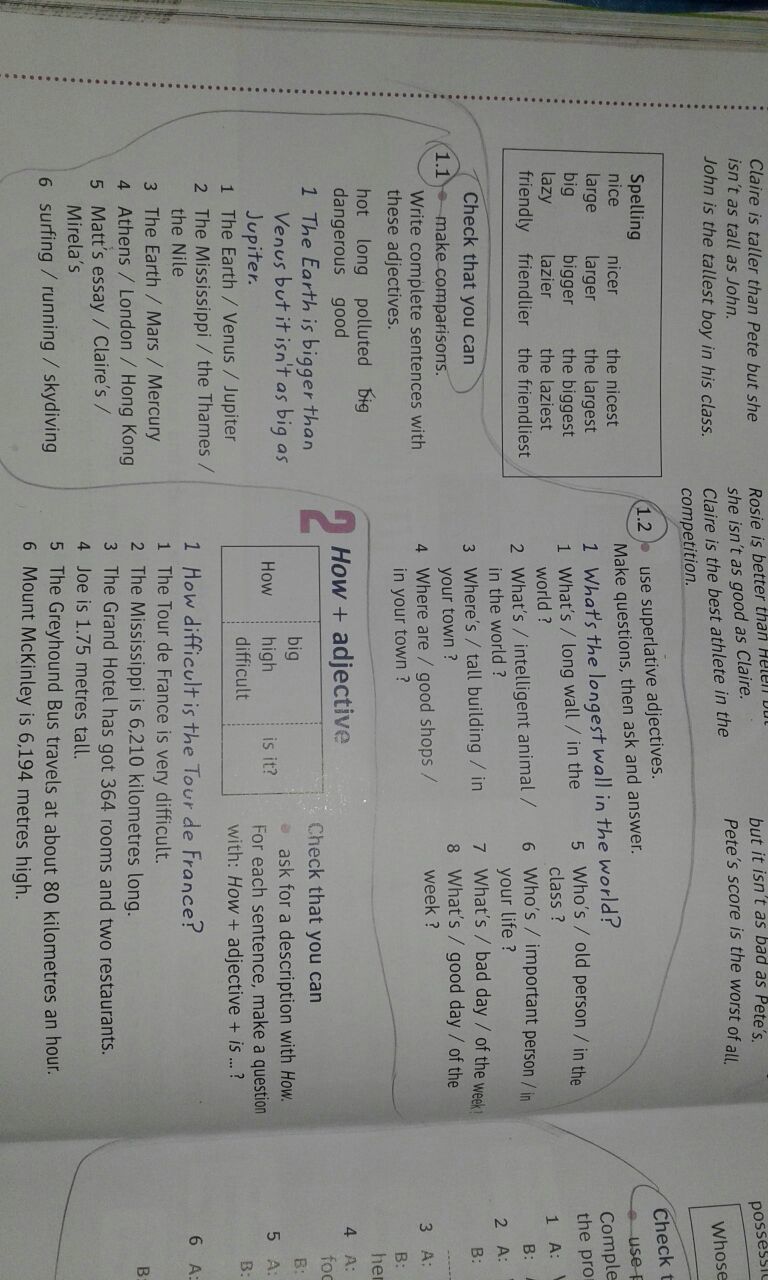 Claire is taller than Pete but she
isn't as tall as John.
John is the tallest boy in his class.
Rosie is better than Helen but
she isn't as good as Claire.
Claire is the best athlete in the
competition.
but it isn't as bad as Pete's.
Pete's score is the worst of all.
Spelling
nice nicer the nicest
large larger the largest
big bigger the biggest
lazy lazier the laziest
friendly friendlier the friendliest
Check that you can
1.1 • make comparisons.
Write complete sentences with
these adjectives.
hot long polluted big
dangerous good
1 The Earth is bigger than
Venus but it isn't as big as
Jupiter.
1 The Earth / Venus / Jupiter
2 The Mississippi / the Thames /
the Nile
3 The Earth / Mars / Mercury
4 Athens / London / Hong Kong
5 Matt's essay / Claire's /
Mirela's
6 surfing / running / skydiving
1.2 • use superlative adjectives.
Make questions, then ask and answer.
1 What's the longest wall in the world?
1 What's / long wall / in the
world ?
2 What's / intelligent animal /
in the world ?
3 Where's / tall building / in
your town ?
4 Where are / good shops /
in your town ?
5 Who's / old person / in the
class ?
6 Who's / important person / in
your life ?
7 What's / bad day / of the week
8 What's / good day / of the
week ?
2 How + adjective
How big is it?
high
difficult
Check that you can
• ask for a description with How.
For each sentence, make a question
with: How + adjective + is ... ?
1 How difficult is the Tour de France?
1 The Tour de France is very difficult.
2 The Mississippi is 6,210 kilometres long.
3 The Grand Hotel has got 364 rooms and two restaurants.
4 Joe is 1.75 metres tall.
5 The Greyhound Bus travels at about 80 kilometres an hour.
6 Mount McKinley is 6,194 metres high.
possessi
Whose
Check t
• use
Comple
the pro
1 A:
B:
2 A:
B:
3 A:
B:
her
4 A:
foo
B:
5 A:
B:
6 A:
B: